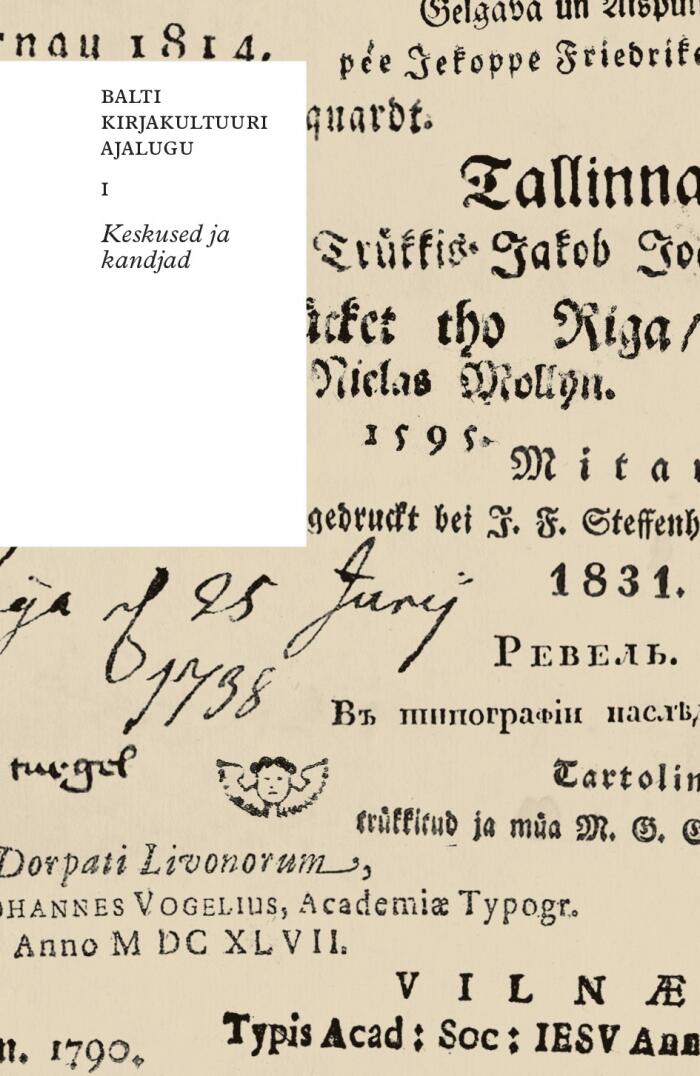 Gelgava un Aispu
rnau 1814.
pée Jekoppe Friedrik
BALTI
KIRJAKULTUURI
AJALUGU
I
Keskused ja
kandjad
quardt.
Tallinna
Trükkis Jakob Jo
ücket tho Riga/
Niclas Mollyn.
1595.
Mitau
gedruckt bei J. F. Steffenh
1831.
ija 25 Junij
1738
РЕВЕЛЬ.
Въ типографіи наслѣд
turgel
Tartolin
trükkitud ja müa M. G.
Dorpati Livonorum,
OHANNES VOGELIUS, Academiæ Typogr.
Anno M DC XLVII.
VILNÆ
Typis Acad: Soc: IESV Ann
n. 1790.